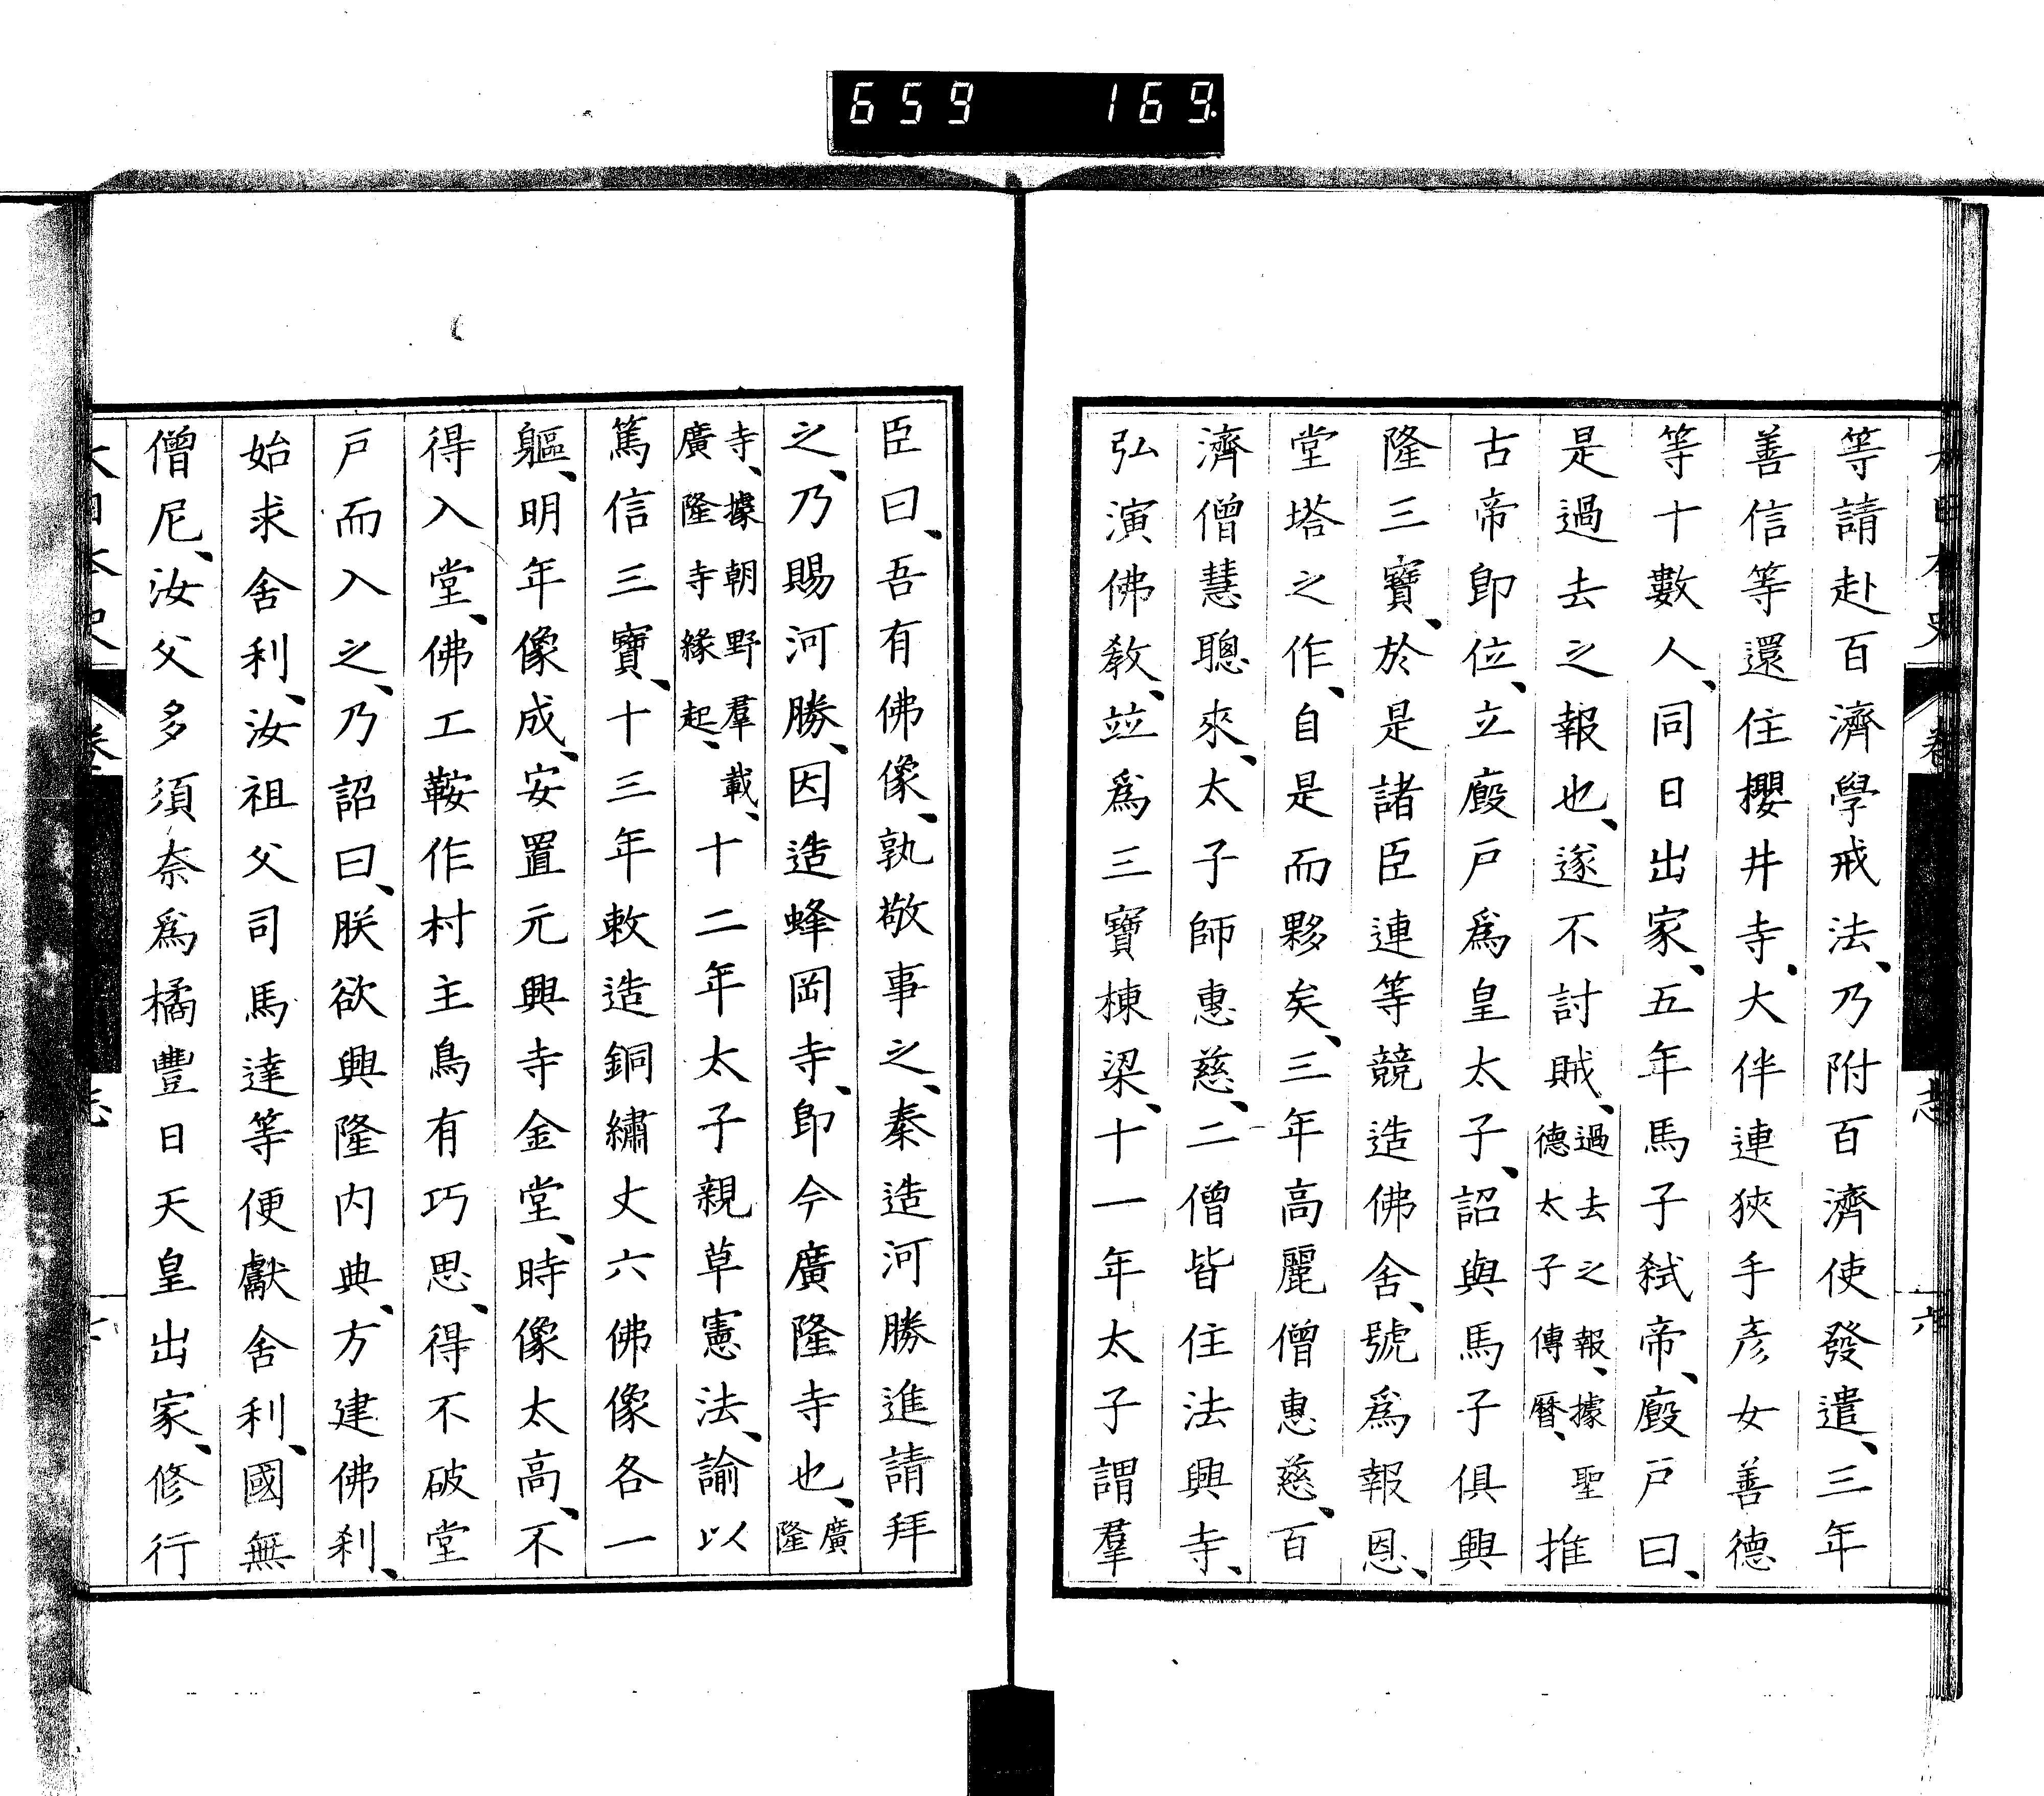 659 169.
大日本史 卷 志 六
等請赴百濟學戒法、乃附百濟使發遣、三年
善信等還住櫻井寺、大伴連狹手彥女善德
等十數人、同日出家、五年馬子弑帝、廐戶曰、
是過去之報也、遂不討賊、過去之報、據聖德太子傳曆、推
古帝卽位、立廐戶爲皇太子、詔與馬子俱興
隆三寶、於是諸臣連等競造佛舍、號爲報恩、
堂塔之作、自是而夥矣、三年高麗僧惠慈、百
濟僧慧聰來、太子師惠慈、二僧皆住法興寺、
弘演佛敎、竝爲三寶棟梁、十一年太子謂羣
臣曰、吾有佛像、孰敬事之、秦造河勝進請拜
之、乃賜河勝、因造蜂岡寺、卽今廣隆寺也、廣隆
寺、據朝野羣載、廣隆寺緣起、十二年太子親草憲法、諭以
篤信三寶、十三年敕造銅繡丈六佛像各一
軀、明年像成、安置元興寺金堂、時像太高、不
得入堂、佛工鞍作村主鳥有巧思、得不破堂
戶而入之、乃詔曰、朕欲興隆內典、方建佛刹、
始求舍利、汝祖父司馬達等便獻舍利、國無
僧尼、汝父多須奈爲橘豐日天皇出家、修行
大日本史 卷 志